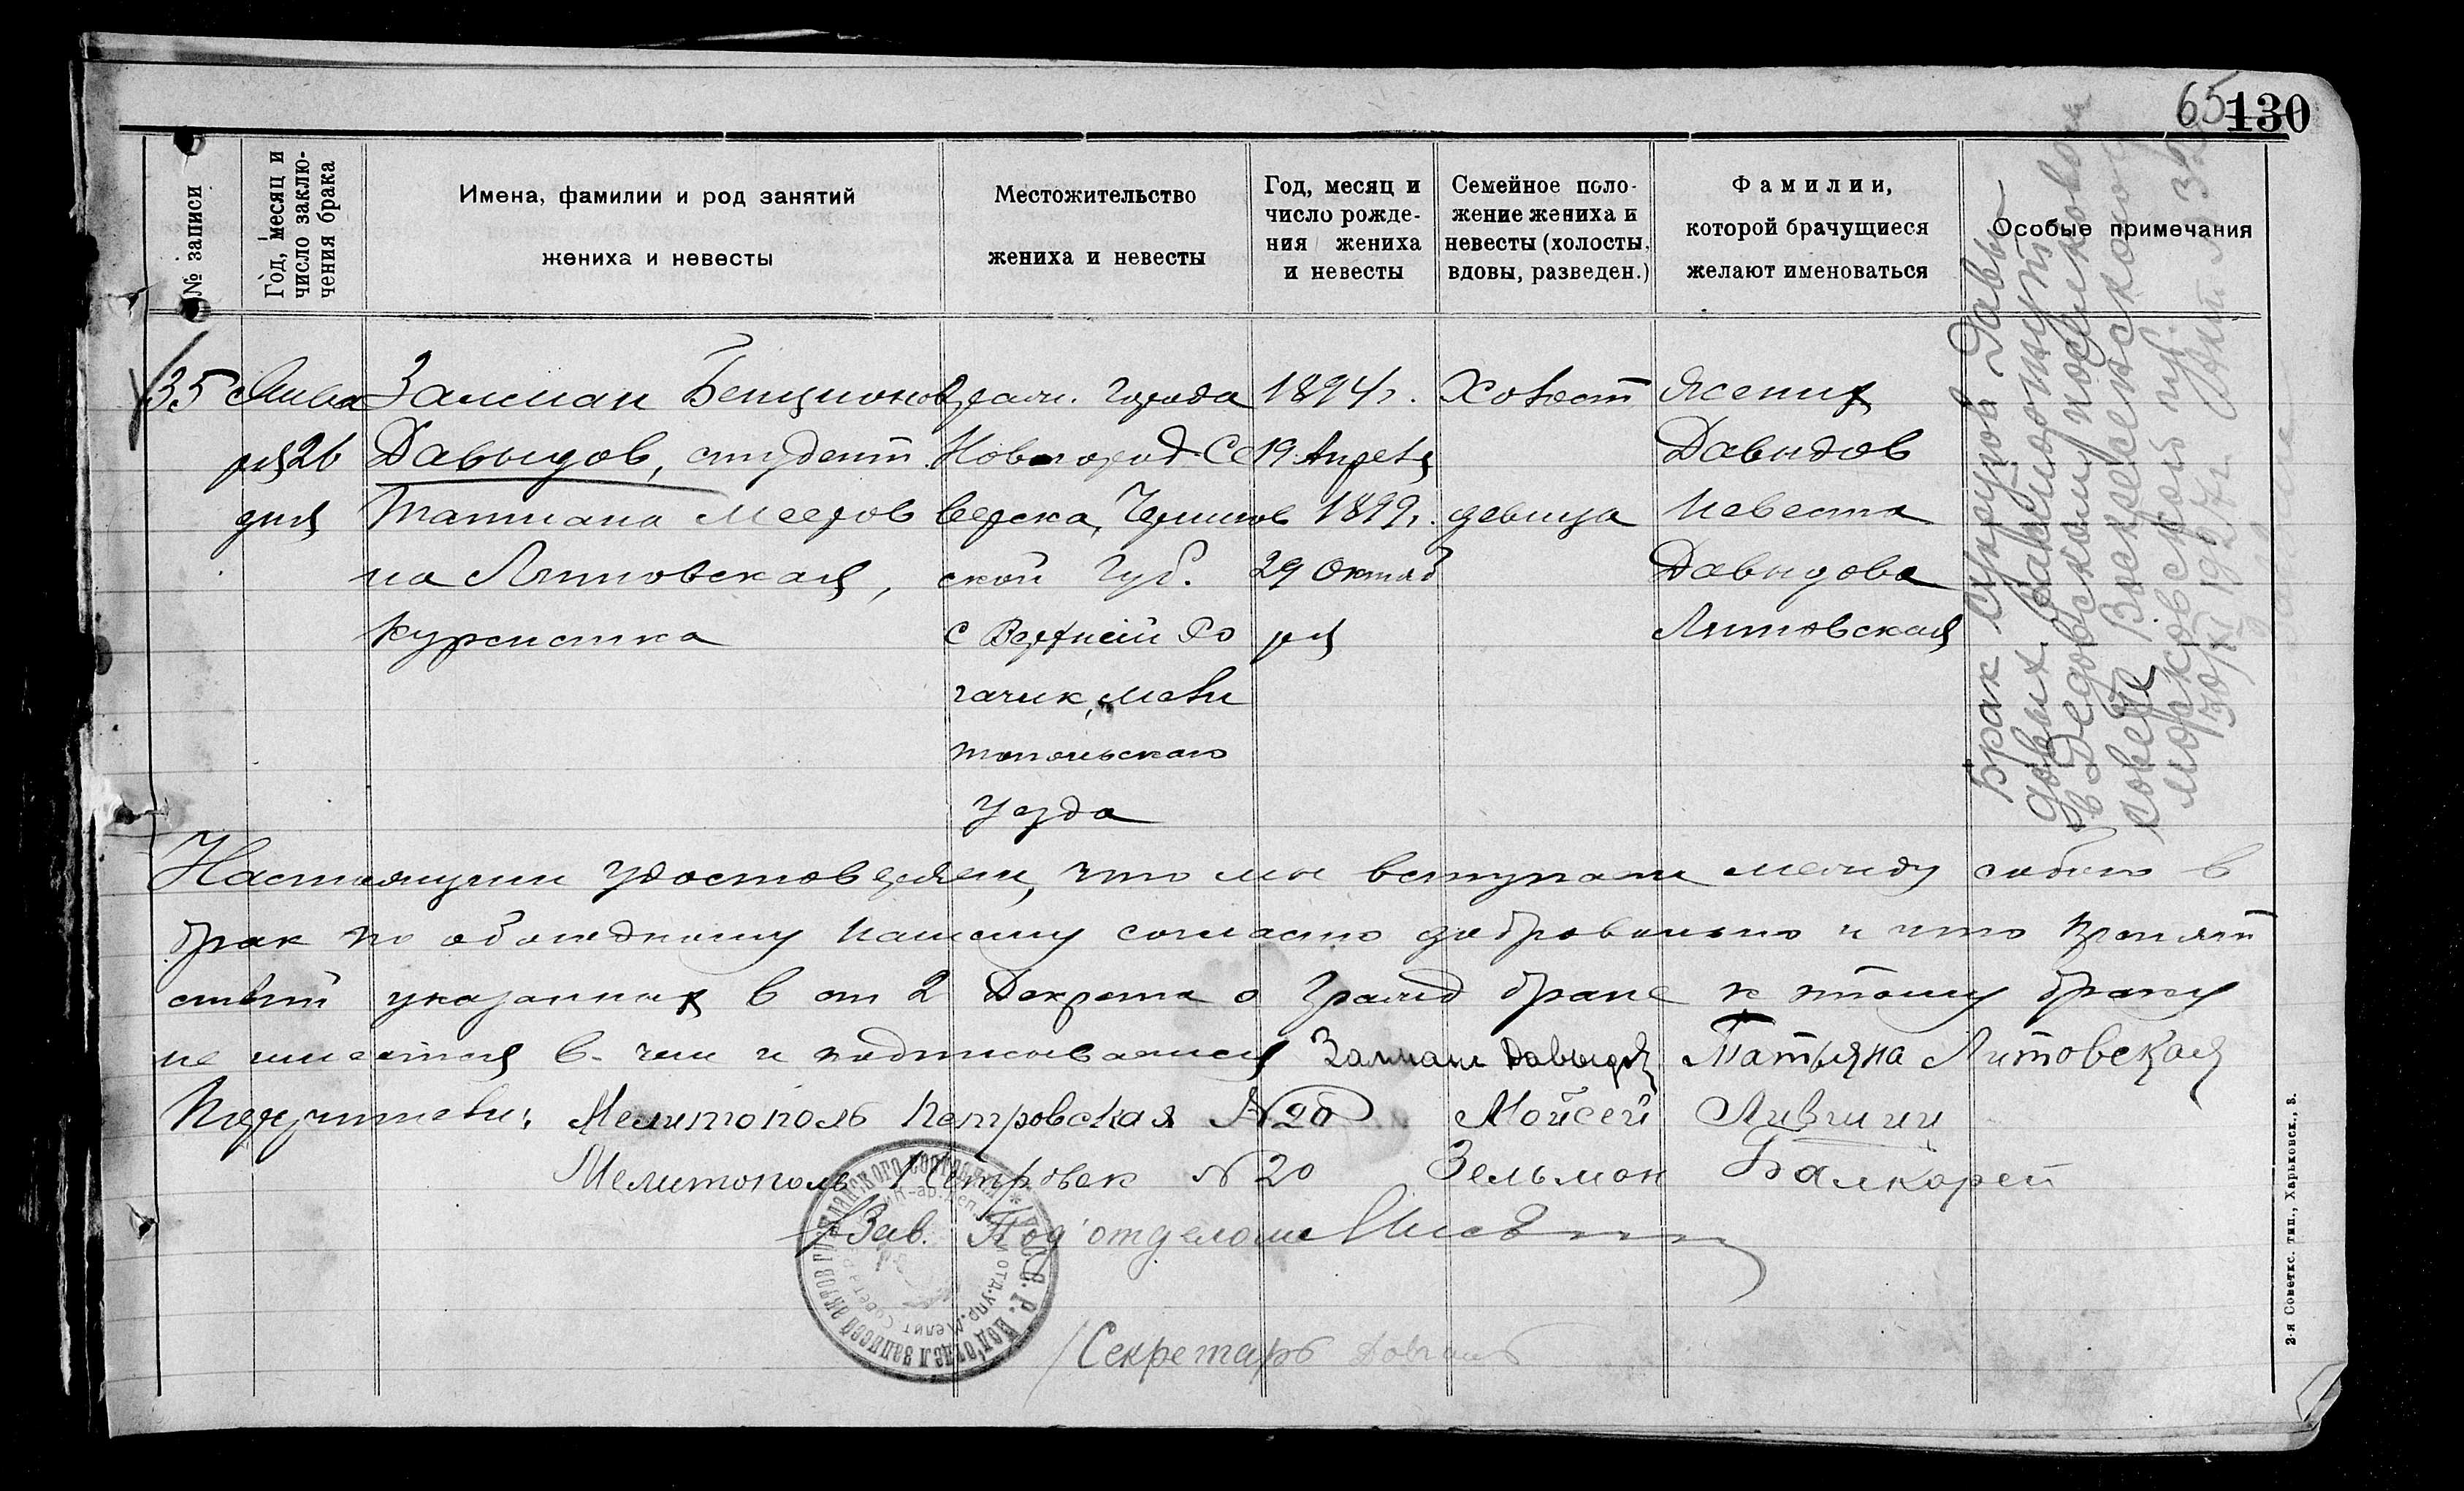 65 130
№ записи
Год, месяц и
число заклю-
чения брака
Имена, фамилии и род занятий
жениха и невесты
Местожительство
жениха и невесты
Год, месяц и
число рожде-
ния жениха
и невесты
Семейное поло-
жение жениха и
невесты (холосты,
вдовы, разведен.)
Фамилии,
которой брачущиеся
желают именоваться
Особые примечания
35
Янва
ря 26
дня
Залман Бенционов
Давыдов, студент
Татиана Мееров
на Литовская,
курсистка
гражд. города
Новгород-Се
верска, Чернигов
ской Губ.
с Верхний Ро
гачик, Мели
топольскаго
Уезда
1894 г.
19 Апреля
1899 г.
29 Октяб
ря
Холост
девица
Жених
Давыдов
Невеста
Давыдова
Литовская
Брак супругов Давы-
довых расторгнут
в Дедовском поселковом
совете Воскресенского у.
Московской губ.
30/XI 1927 г. Акт №
Настоящим удостоверяем, что мы вступаем между собою в
брак по обоюдному нашему согласию добровольно и что препят
ствий указанных в ст 2 Декрета о Гражд браке к этому браку
не имеется в чем и подписываемся Залман Давыдов Татьяна Литовская
Поручители: Мелитополь Петровская №20 Мойсей Лившиц
Мелитополь Петровск №20 Зельман
Зав. Под'отделом
Секретарь
2-я Советск. тип., Харьковск., 8.